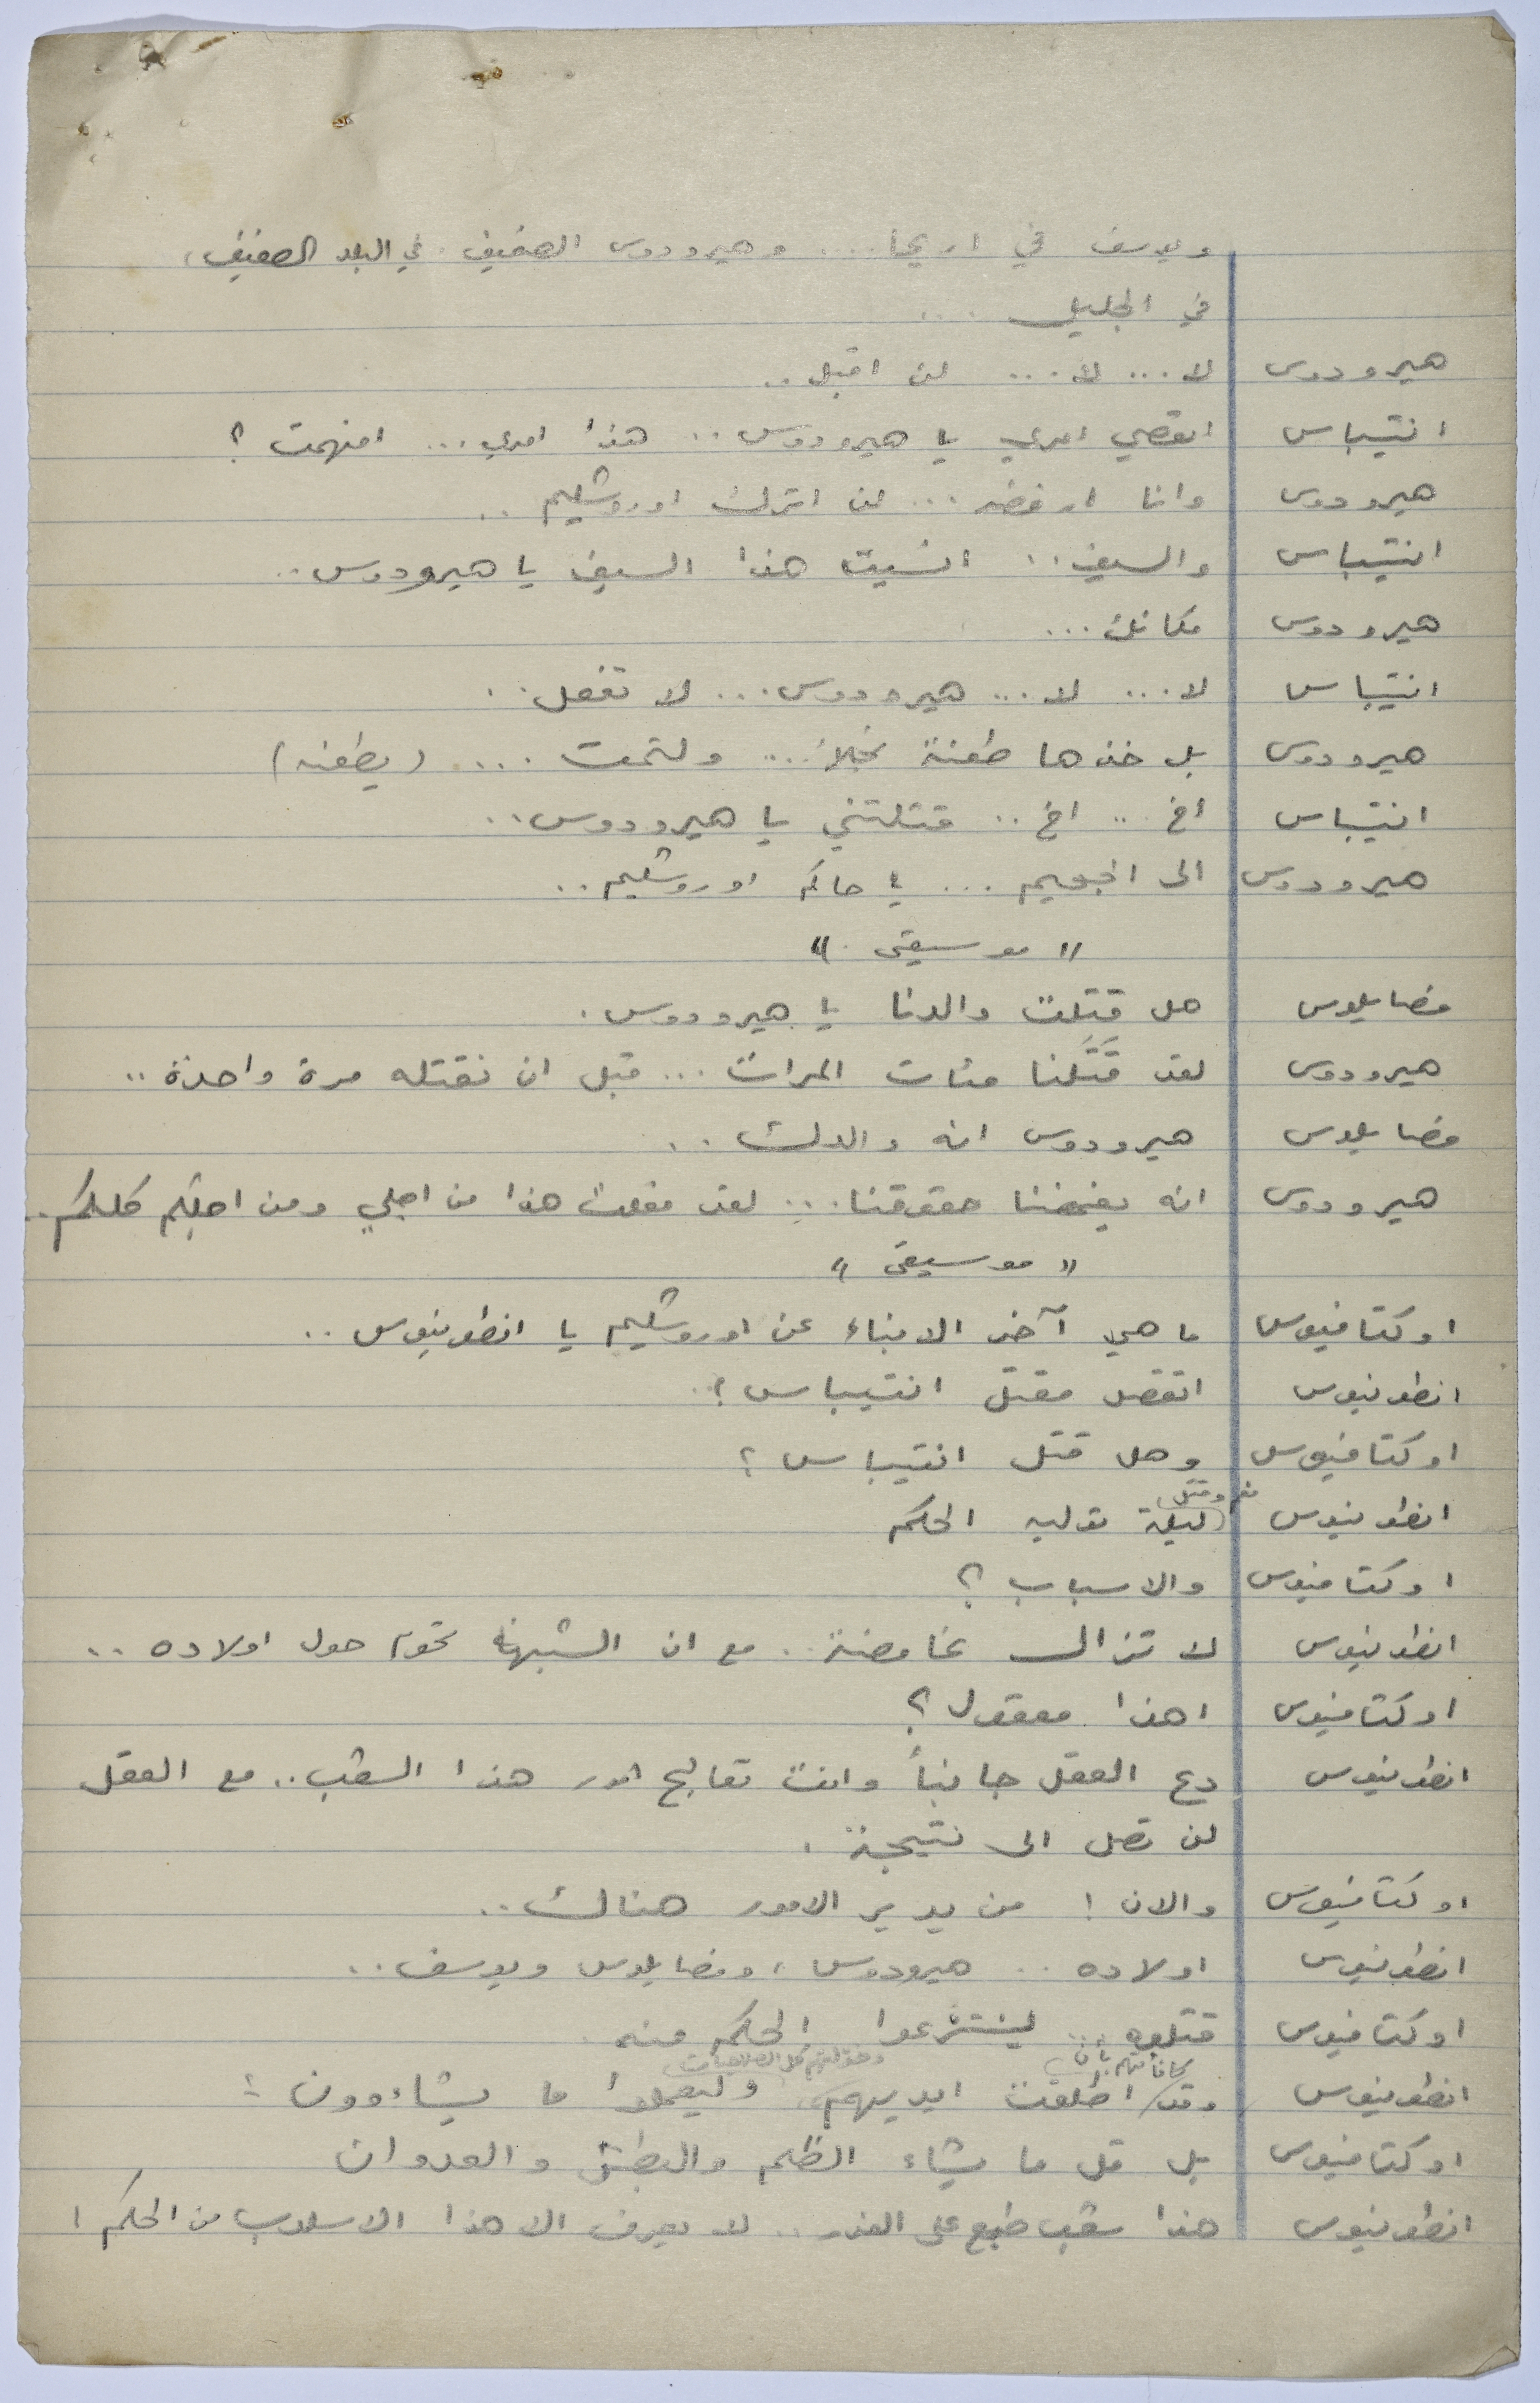 ويوسف في اريحا .... وهيرودوس الضعيف . في البلد الضعيف،
في الجليل ....
هيرودوس لا ... لا ... لن اقبل ..
انتيباس اتعصي امري يا هيرودوس .. هذا امري ... افهمت ؟
هيرودوس وانا ارفضه ... لن اترك اوروشليم ..
انتيباس والسيف .. انسيت هذا السيف يا هيرودوس ..
هيرودوس مكانك ...
انتيباس لا ... لا ... هيرودوس ... لا تفعل ..
هيرودوس بل خذها طعنة نجلاء ... ولتمت .... (يطعنه)
انتيباس اخ .. اخ .. قتلتني يا هيرودوس ..
هيرودوس الى الجحيم ... يا حاكم اوروشليم ..
" موسيقى "
فصايلوس هل قتلت والدنا يا هيرودوس .
هيرودوس لقد قَتَلَنا مئات المرات ... قبل ان نقتله مرة واحدة ..
فصايلوس هيرودوس انه والدك ..
هيرودوس انه يغمضنا حقوقنا ... لقد فعلت هذا من اجلي ومن اجلكم كلكم ..
" موسيقى "
اوكتافيوس ما هي آخر الانباء عن اوروشليم يا انطونيوس ..
انطونيوس اتقصد مقتل انتيباس ؟
اوكتافيوس وهل قتل انتيباس ؟
انطونيوس نعم وقتل ليلة توليه الحكم
اوكتافيوس والاسباب ؟
انطونيوس لا تزال غامضة .. مع ان الشبهة تحوم حول اولاده ..
اوكتافيوس اهذا معقول ؟
انطونيوس دع العقل جانباً وانت تعالج امور هذا الشعب .. مع العقل
لن تصل الى نتيجة .
اوكتافيوس والان ! من يدير الامور هناك ..
انطونيوس اولاده .. هيرودوس ، وفصايلوس ويوسف ..
اوكتافيوس قتلوه .. لينتزعوا الحكم منه
انطونيوس وقد كافأتهم بأن اطلقت ايديهم وخولتهم كل الصلاحيات وليعملوا ما يشاءوون ؛
اوكتافيوس بل قل ما يشاء الظلم والبطش والعدوان
انطونيوس هذا شعب طبع على الغدر .. لا يعرف الا هذا الاسلوب من الحكم !